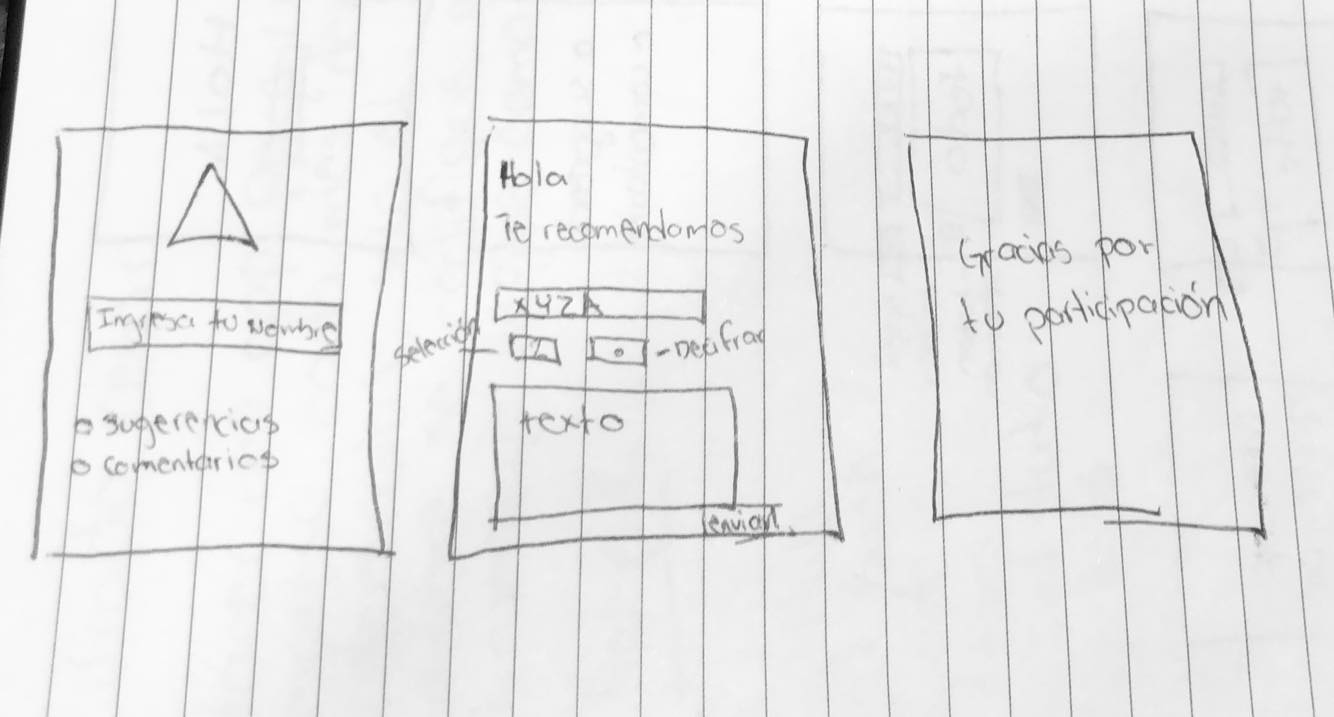 Ingresa tu Nombre
o sugerencias
o comentarios
Hola
Te recomendamos
XYZA
Selección
- Decifrar
texto
enviar
Gracias por
tu participación